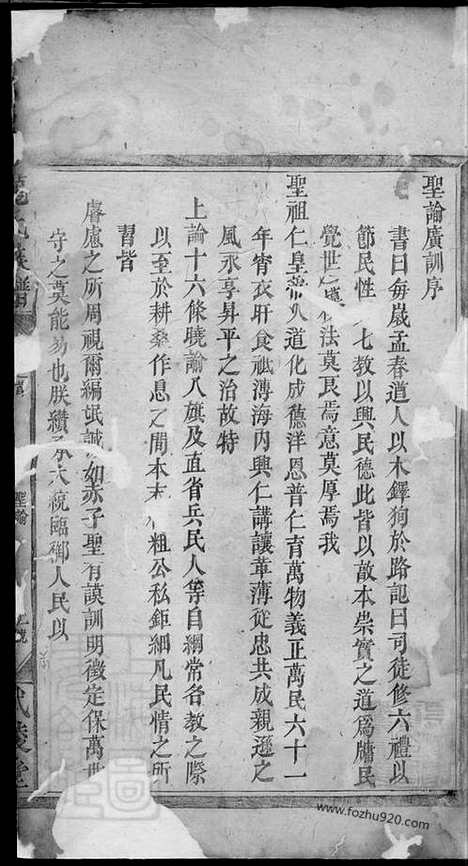 聖諭廣訓序
書曰每歲孟春道人以木鐸狥於路記曰司徒修六禮以
節民性 七教以興民德此皆以敦本崇實之道爲牗民
覺世 法莫良焉意莫厚焉我
聖祖仁皇帝久道化成德洋恩普仁育萬物義正萬民六十一
年宵衣旰食祗漙海内興仁講讓革薄從忠共成親遜之
風永享昇平之治故特
上諭十六條曉諭八旗及直省兵民人等自綱常名教之際
以至於耕桑作息之間本末 粗公私鉅細凡民情之所
習皆
睿慮之所周視爾編氓誠如赤子聖有謨訓明徵定保萬世
守之莫能易也朕纘承大統臨御人民以
聖諭
武陵堂
www.fozhu920.com